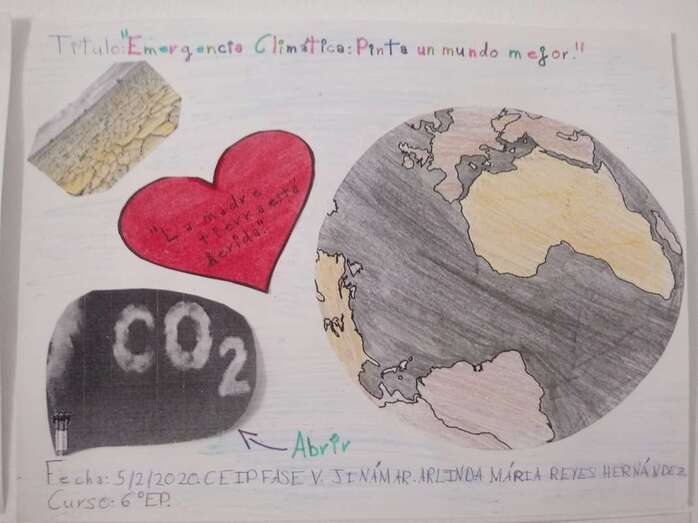 Título: "Emergencia Climática: Pinta un mundo mejor."
"La madre
tierra está
herida."
CO2
Abrir
Fecha: 5/2/2020. CEIP FASE V. JINÁMAR. ARLINDA MÁRIA REYES HERNÁNDEZ
Curso: 6º EP.